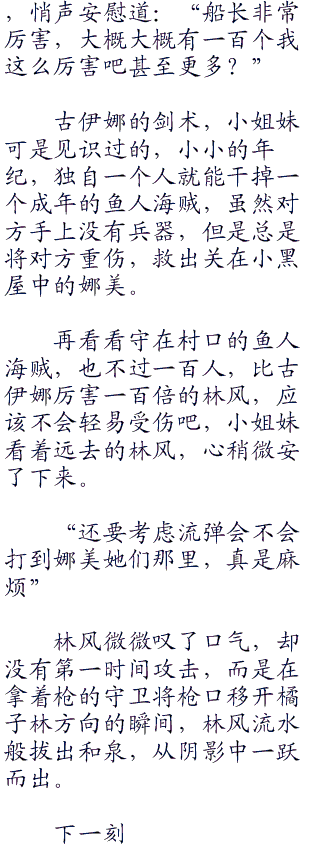 ，悄声安慰道：“船长非常
厉害，大概大概有一百个我
这么厉害吧甚至更多？”
古伊娜的剑术，小姐妹
可是见识过的，小小的年
纪，独自一个人就能干掉一
个成年的鱼人海贼，虽然对
方手上没有兵器，但是总是
将对方重伤，救出关在小黑
屋中的娜美。
再看看守在村口的鱼人
海贼，也不过一百人，比古
伊娜厉害一百倍的林风，应
该不会轻易受伤吧，小姐妹
看着远去的林风，心稍微安
了下来。
“还要考虑流弹会不会
打到娜美她们那里，真是麻
烦”
林风微微叹了口气，却
没有第一时间攻击，而是在
拿着枪的守卫将枪口移开橘
子林方向的瞬间，林风流水
般拔出和泉，从阴影中一跃
而出。
下一刻